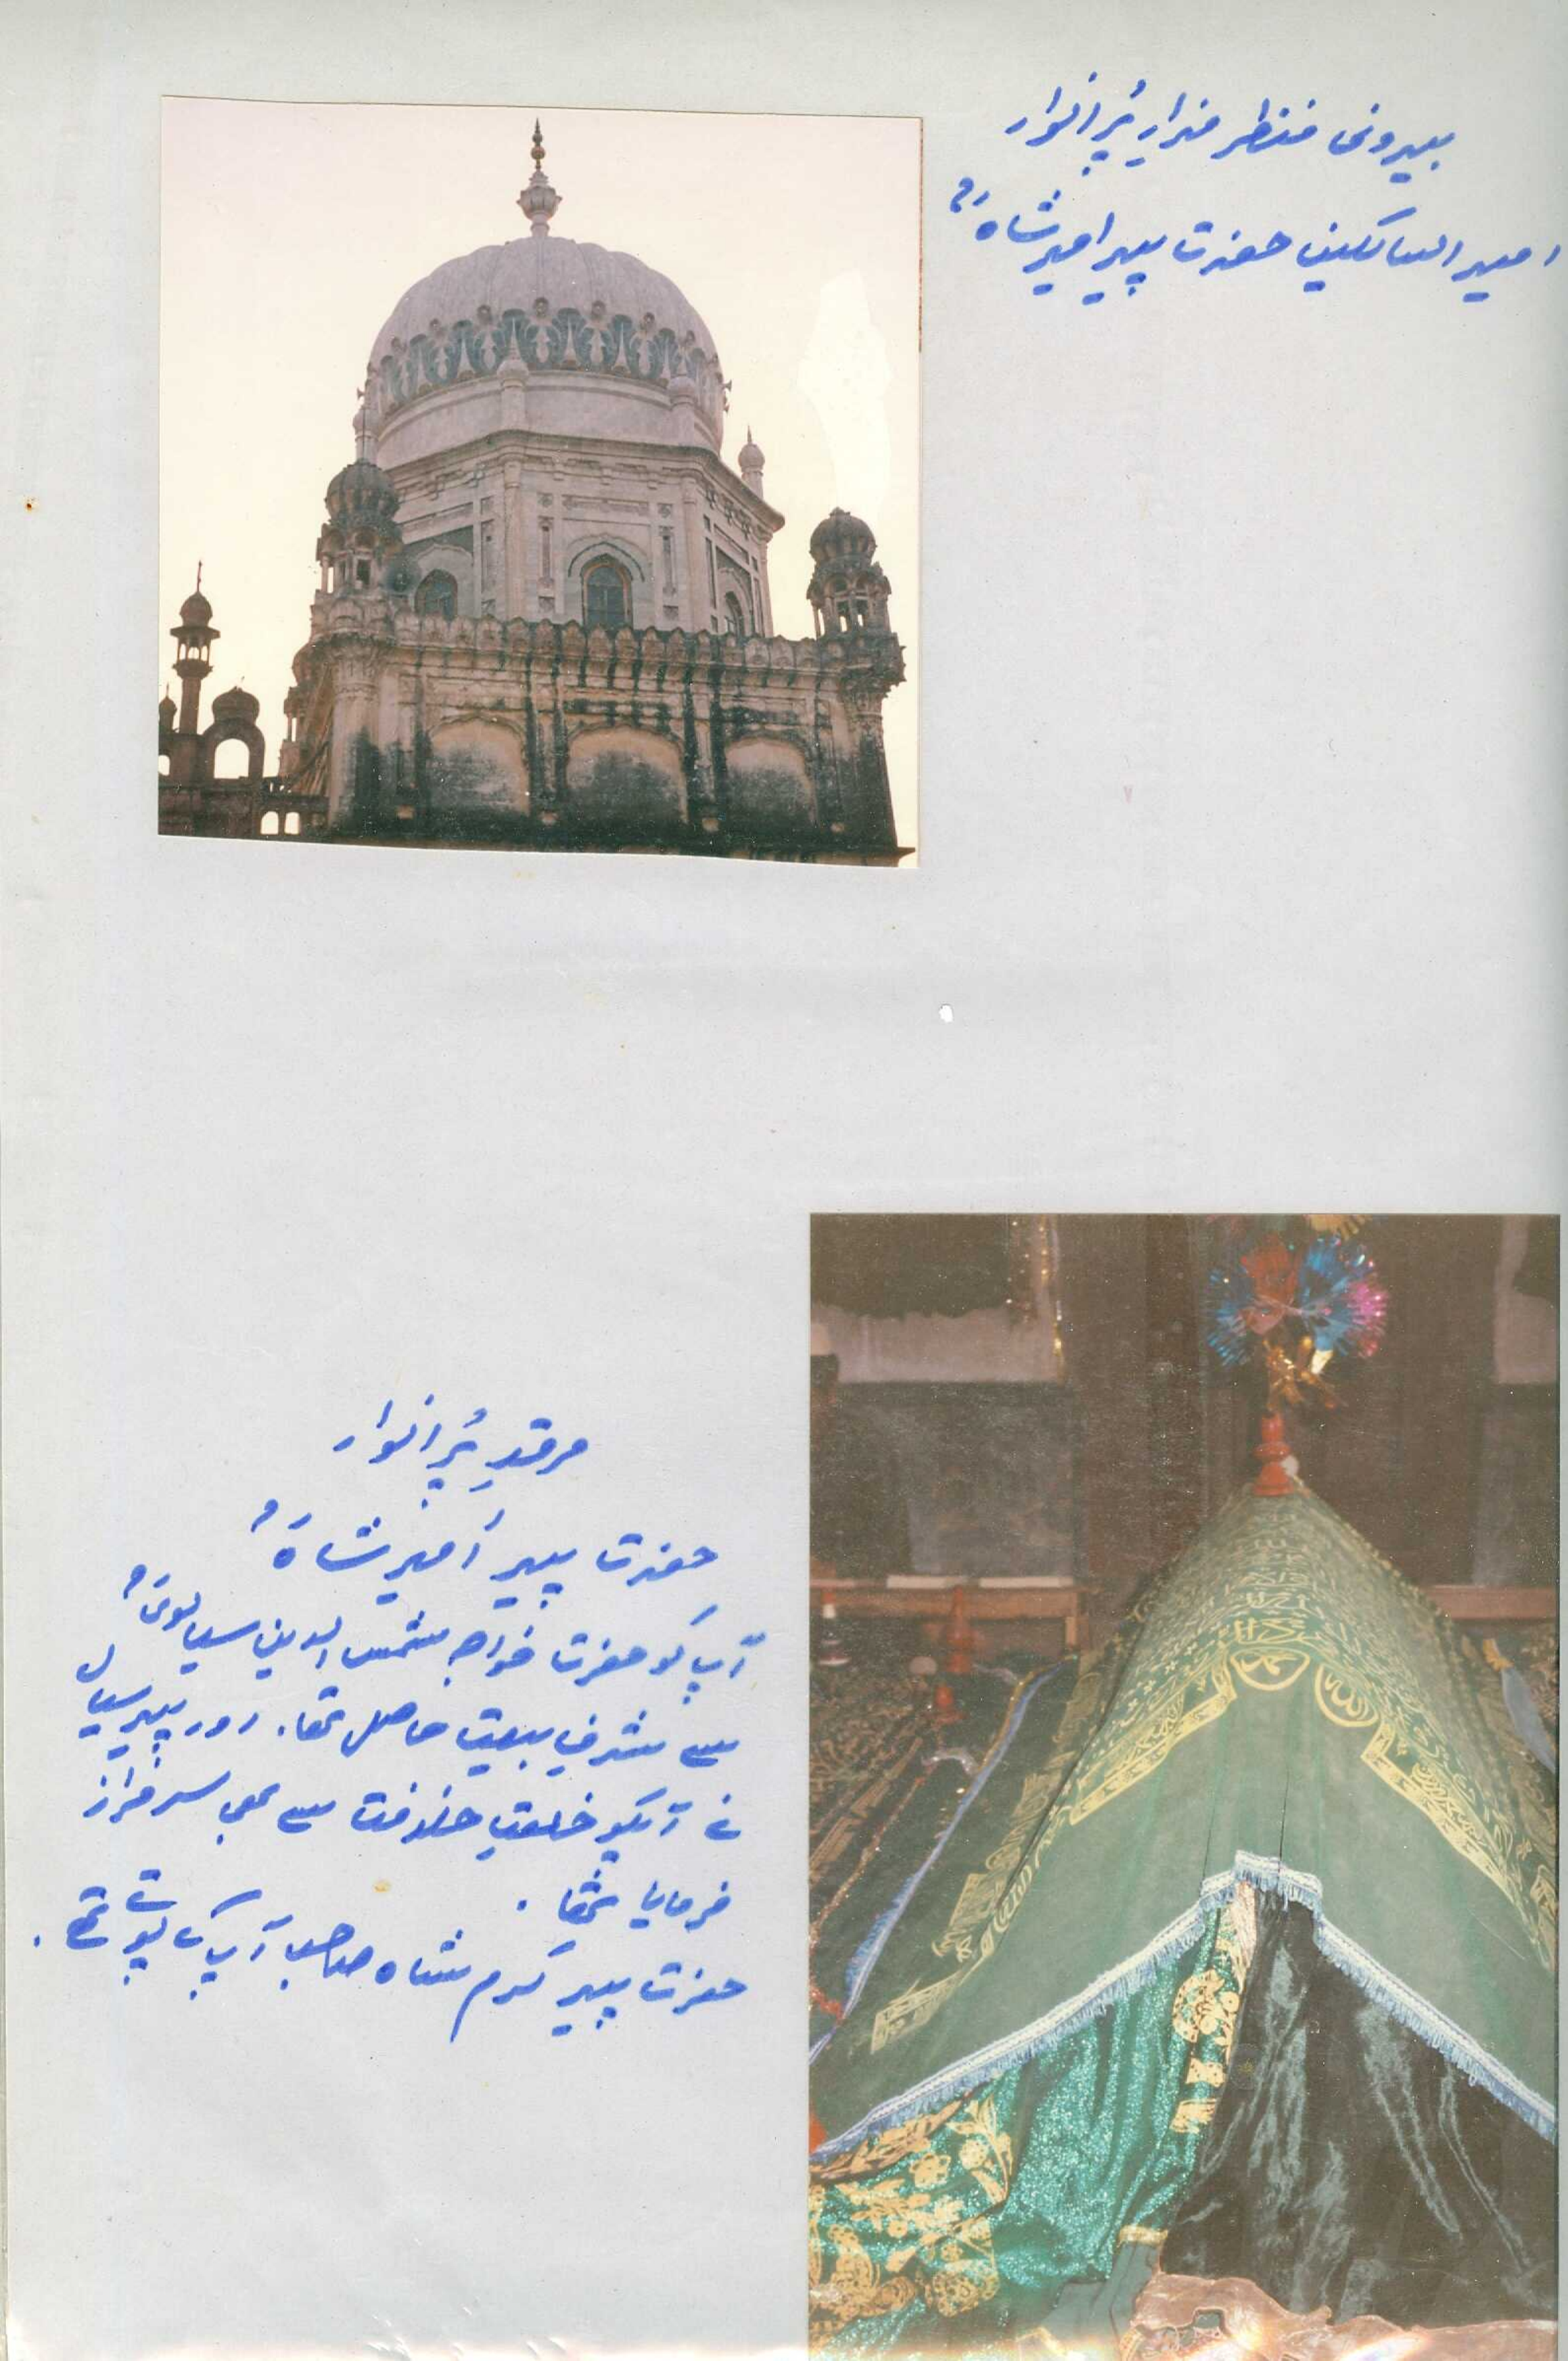 بیرونی منظر مزارِ پُر انوار
امیر السالکین حضرت پیر امیر شاہؒ
مرقدِ پُر انوار
حضرت پیر امیر شاہؒ
آپ کو حضرت خواجہ شمس الدین سیالویؒ
سے شرفِ بیعت حاصل تھا۔ اور پیر سیال
نے آپکو خلعتِ خلافت سے بھی سرفراز
فرمایا تھا۔
حضرت پیر کرم شاہ صاحب آپ کے پوتے تھے۔
الله
محمد